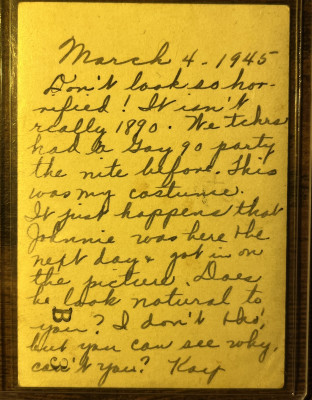 March 4 - 1945
Don't look so hor-
rified! It isn't
really 1890. We tchrs
had a Gay 90 party
the nite before. This
was my costume.
It just happens that
Johnnie was here the
next day & got in on
the picture. Does
he look natural to
you? I don't tho',
but you can see why,
can't you? Kay
B